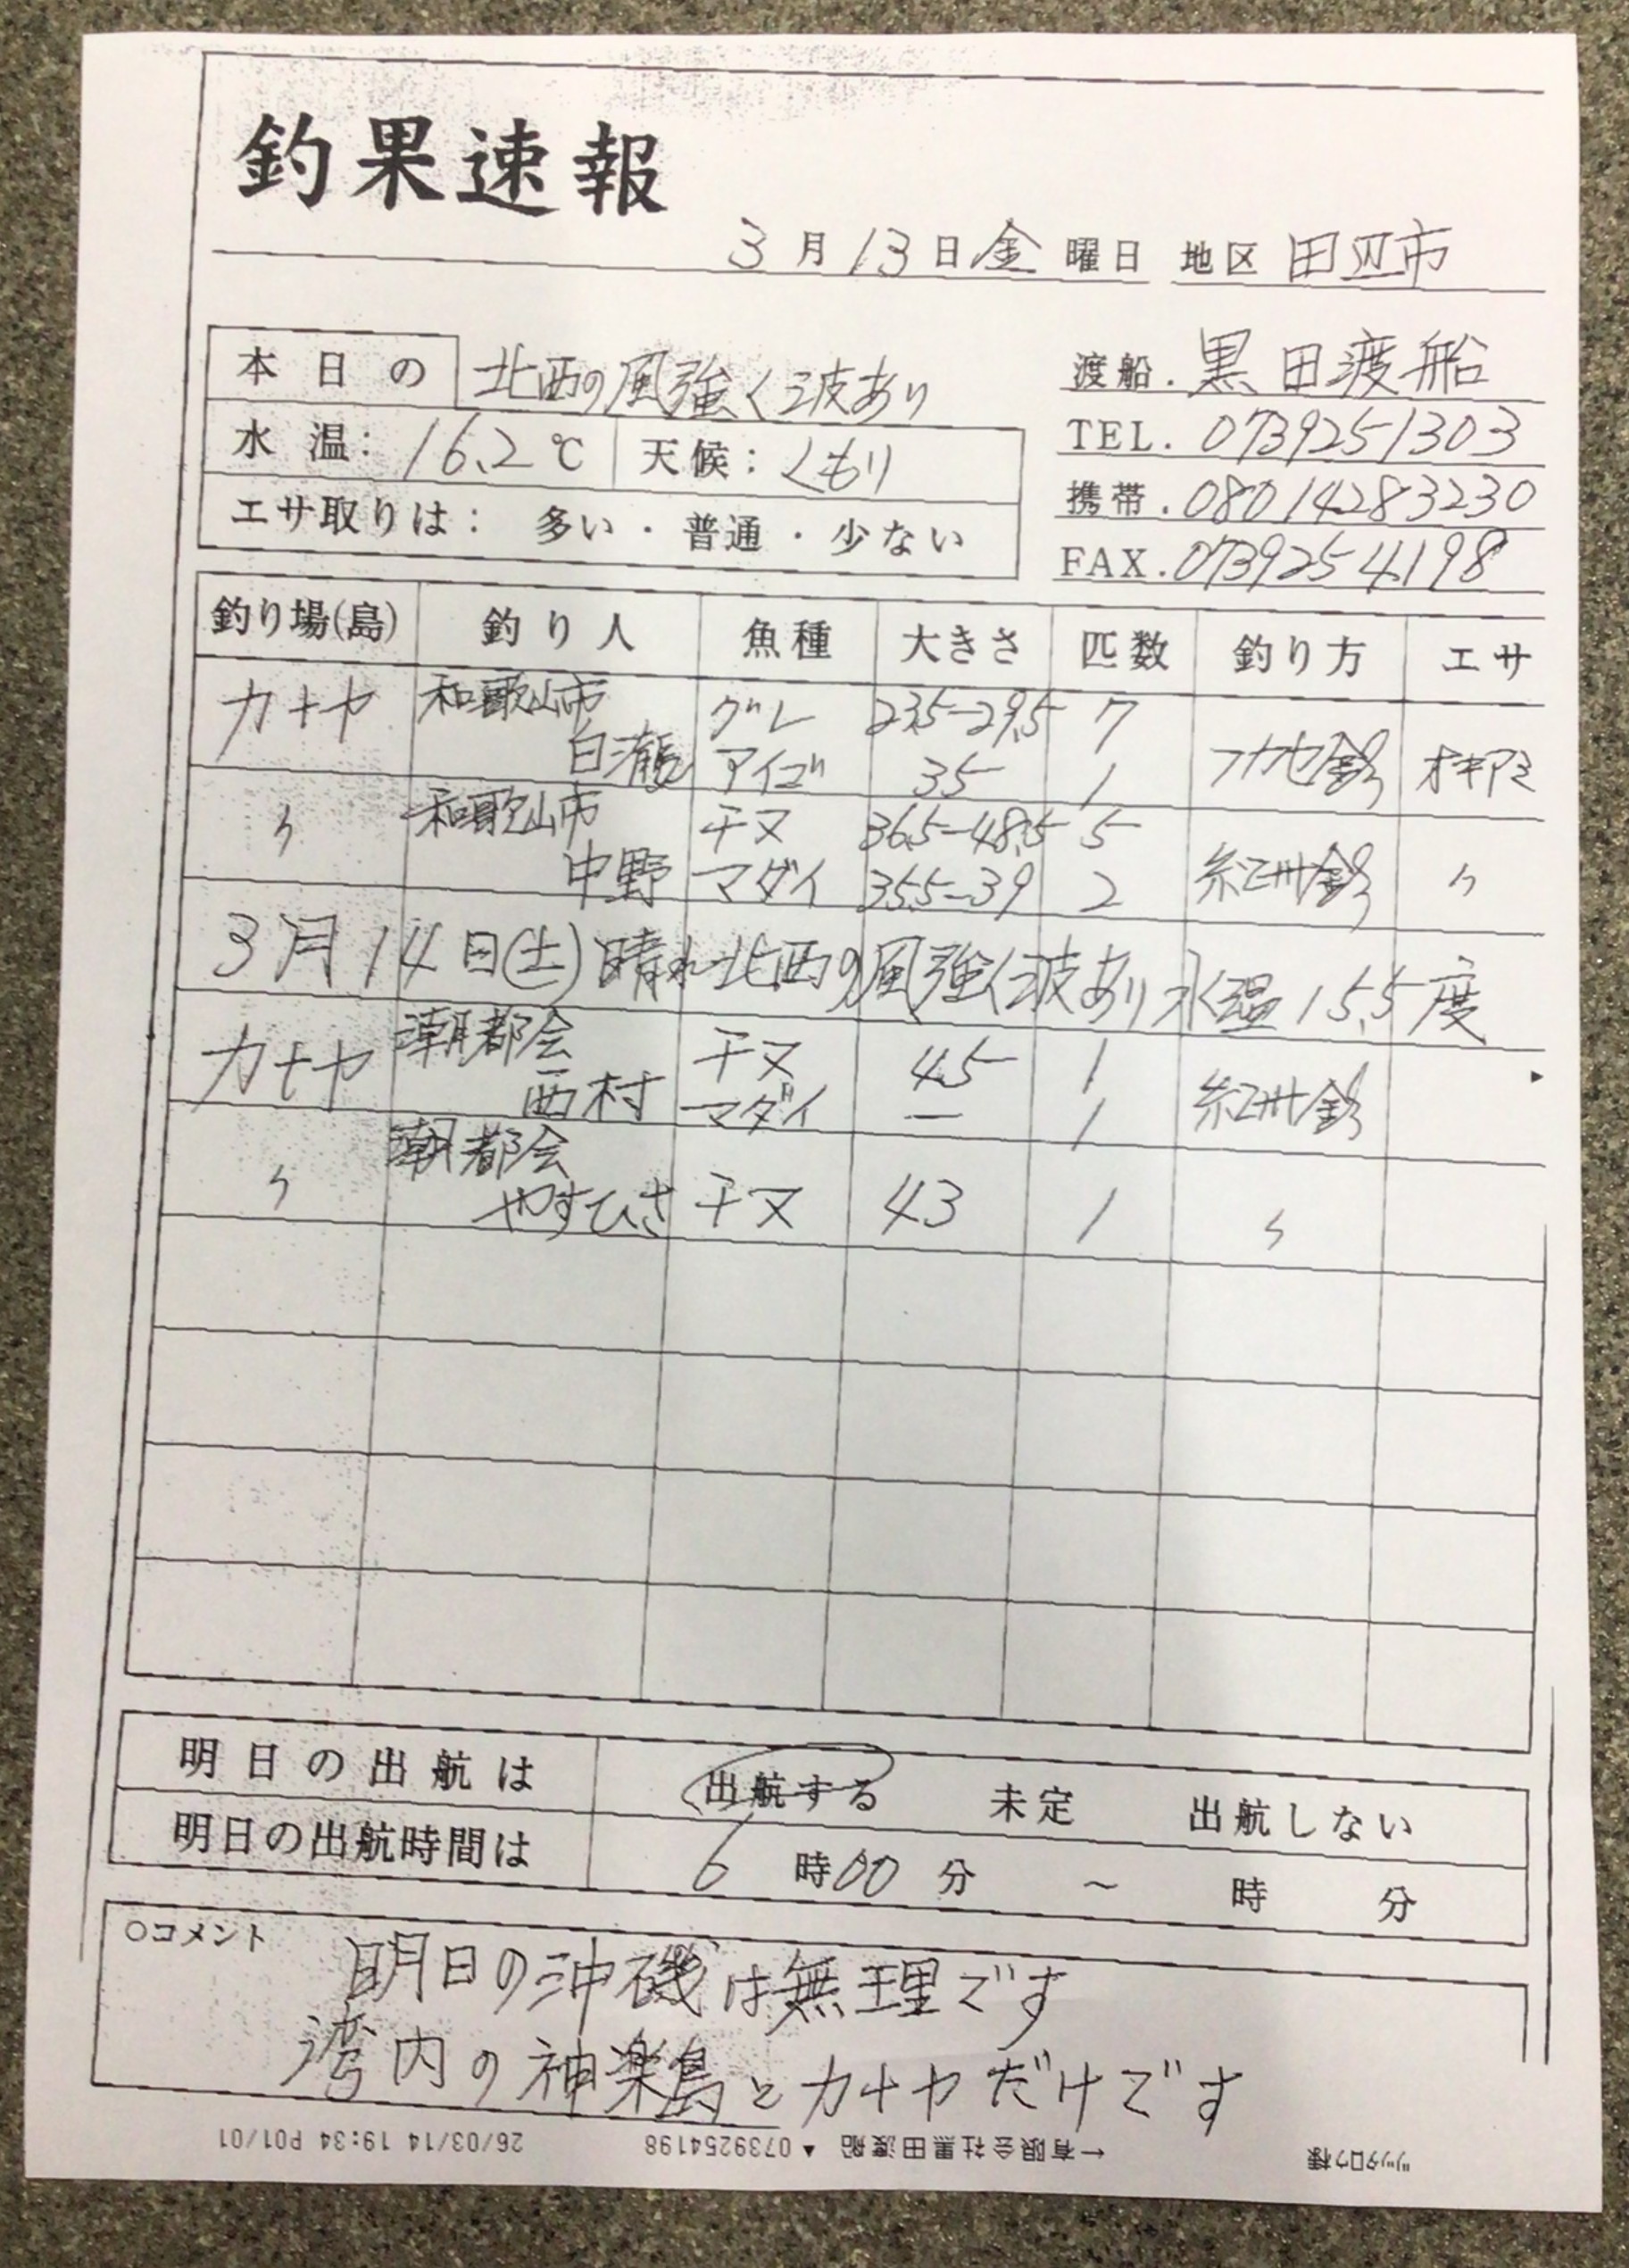 釣果速報
3月13日金曜日 地区 田辺市
本日の 北西の風強く波あり
水温: 16.2℃ 天候: くもり
エサ取りは: 多い・普通・少ない
渡船. 黒田渡船
TEL. 0739251303
携帯. 08014283230
FAX. 0739254198
釣り場(島) 釣り人 魚種 大きさ 匹数 釣り方 エサ
カナヤ 和歌山市 グレ 23.5-29.5 7
白瀧 アイゴ 35 1 フカセ釣 オキアミ
〃 和歌山市 チヌ 36.5-48.5 5
中野 マダイ 35.5-39 2 紀州釣 〃
3月14日(土)晴れ北西の風強く波あり水温15.5度
カナヤ 潮都会 チヌ 45 1
西村 マダイ ー 1 紀州釣
〃 潮都会
やすひさ チヌ 43 1 〃
明日の出航は 出航する 未定 出航しない
明日の出航時間は 6時00分 ~ 時 分
○コメント 明日の沖磯は無理です
湾内の神楽島とカナヤだけです
26/03/14 19:34 P01/01 ←有限会社黒田渡船 ▲ 0739254198 ツッタロウ様